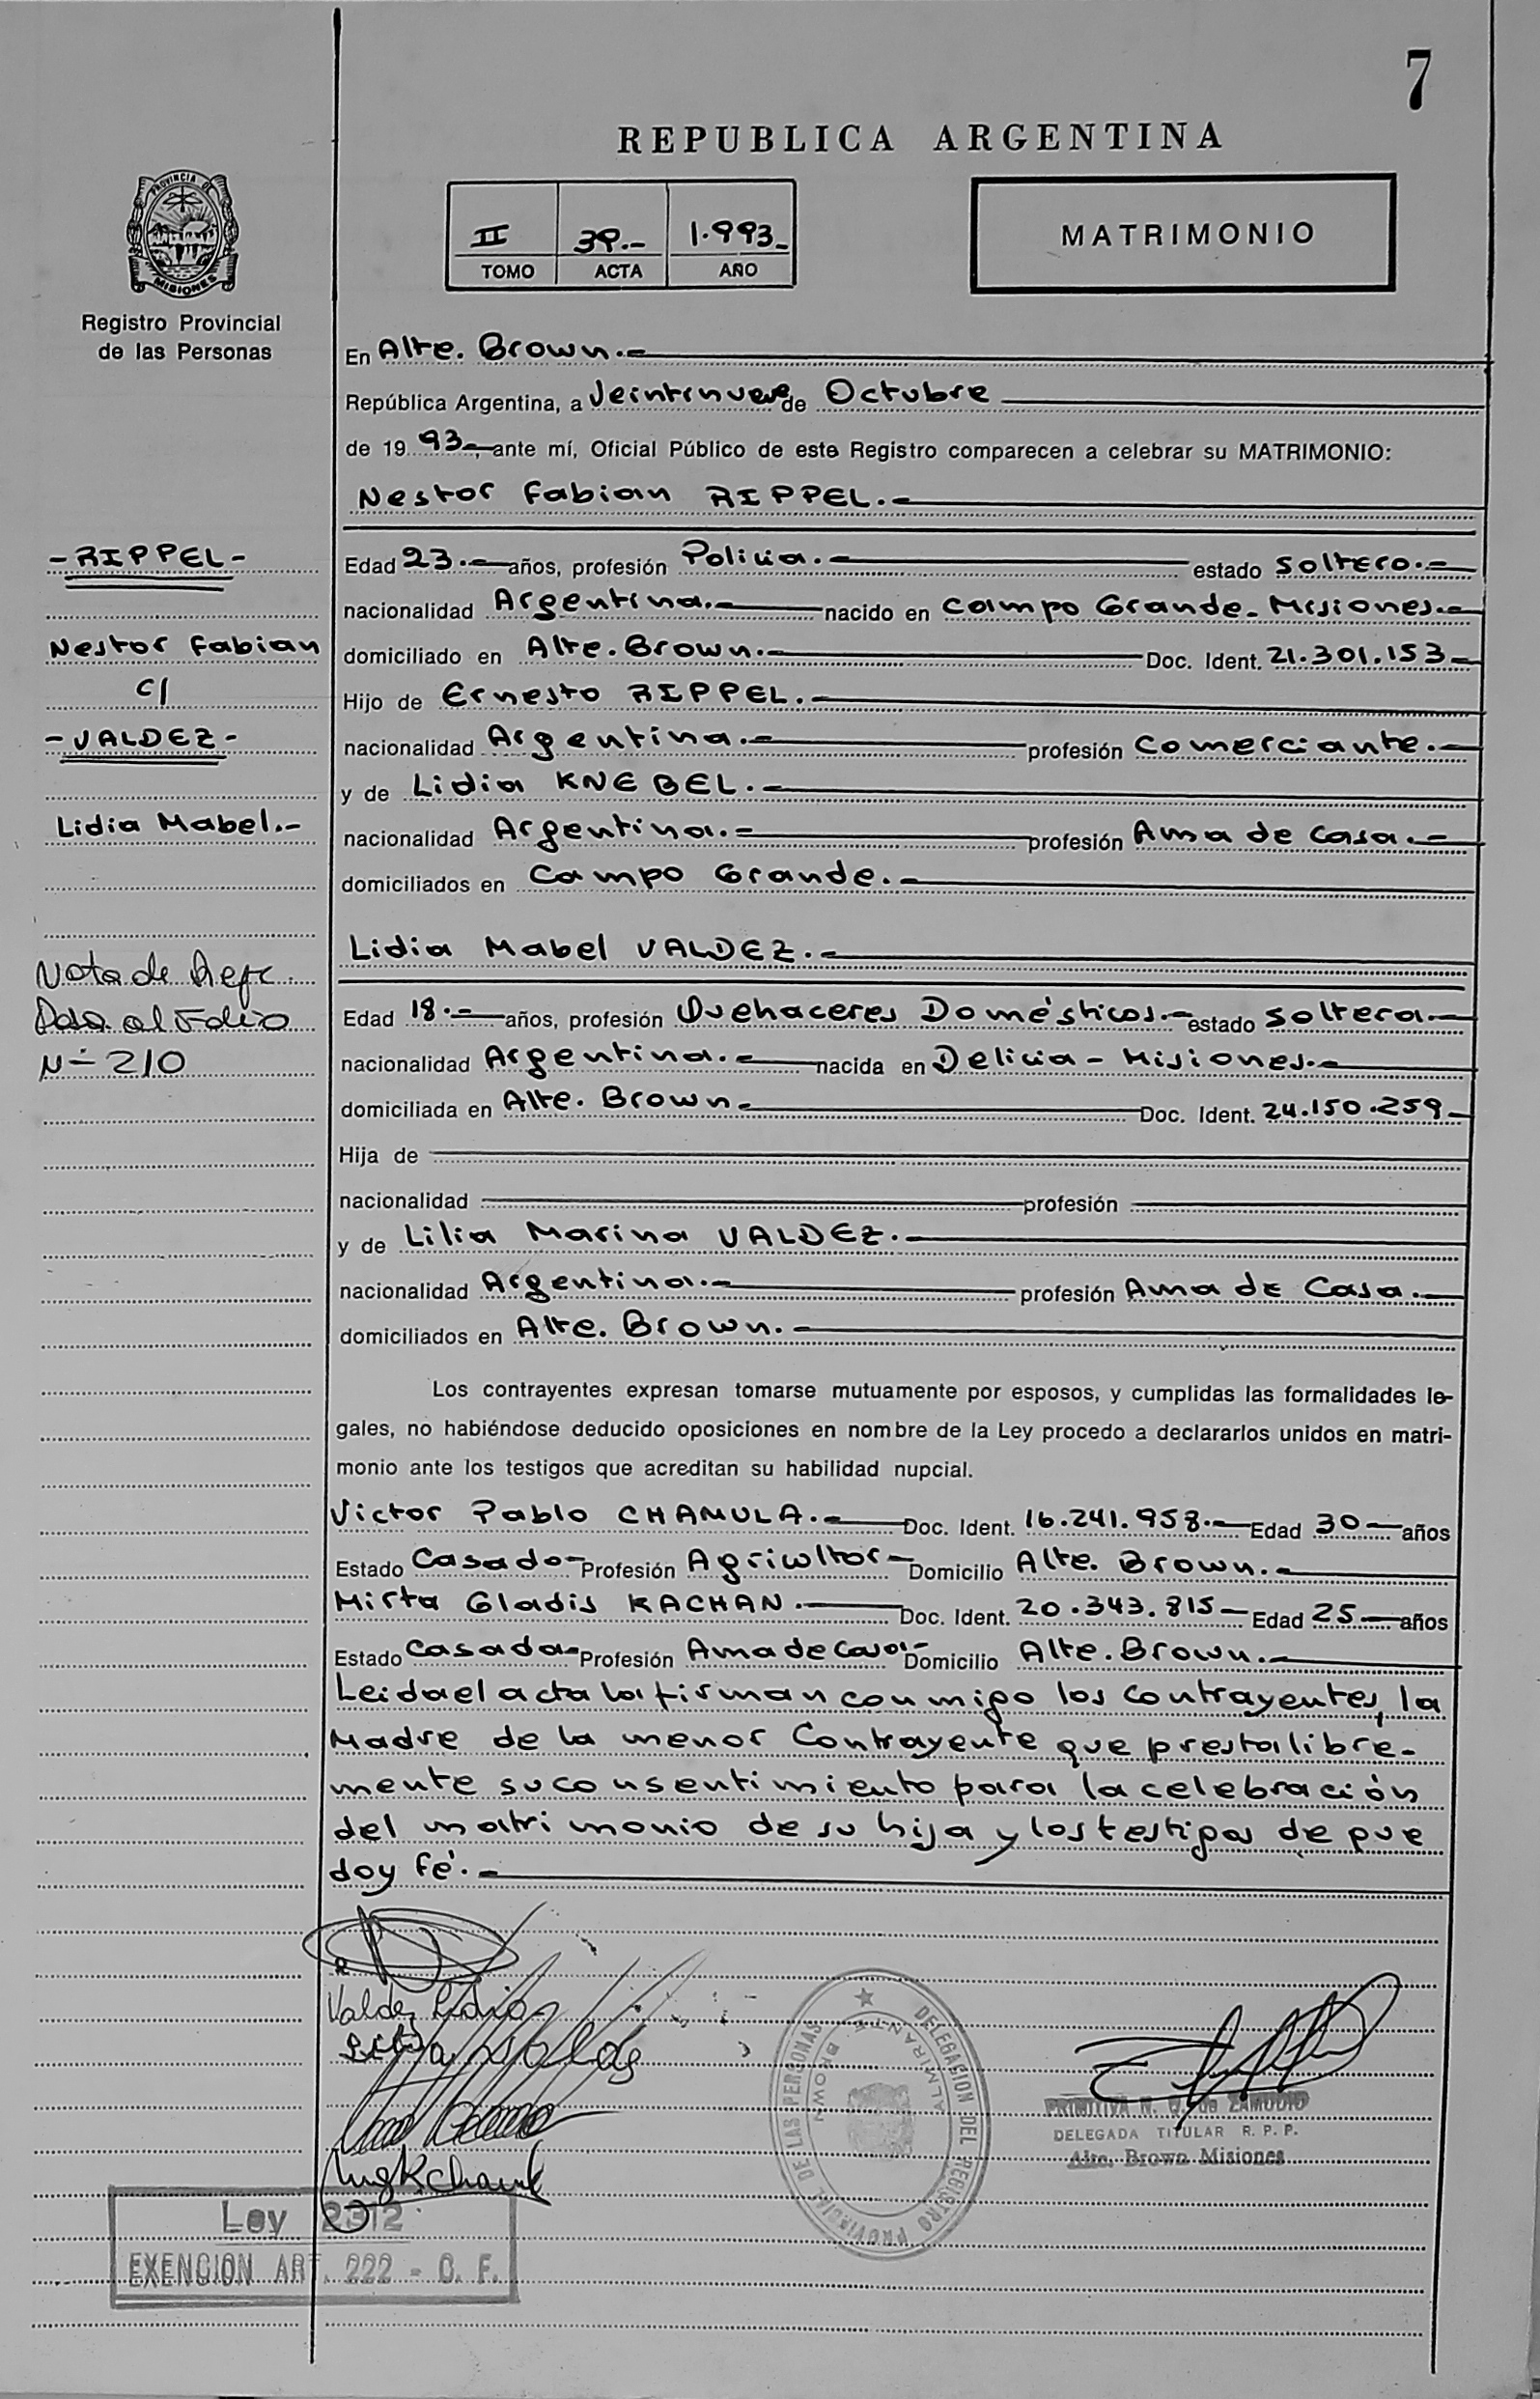 7
REPUBLICA ARGENTINA
PROVINCIA DE
MISIONES
Registro Provincial
de las Personas
II 39.- 1.993-
TOMO ACTA AÑO
MATRIMONIO
En Alte. Brown.-
República Argentina, a Veintinueve de Octubre
de 19 93-, ante mí, Oficial Público de este Registro comparecen a celebrar su MATRIMONIO:
Nestor Fabian RIPPEL.-
-RIPPEL-
Nestor Fabian
C/
-VALDEZ-
Lidia Mabel.-
Edad 23.- años, profesión Policia.- estado Soltero.-
nacionalidad Argentina.- nacido en Campo Grande- Misiones.-
domiciliado en Alte. Brown.- Doc. Ident. 21.301.153-
Hijo de Ernesto RIPPEL.-
nacionalidad Argentina.- profesión Comerciante.-
y de Lidia KNEBEL.-
nacionalidad Argentina.- profesión Ama de Casa.-
domiciliados en Campo Grande.-
Lidia Mabel VALDEZ.-
Nota de Refc.
Pasa al Folio
Nº 210
Edad 18.- años, profesión Quehaceres Domésticos.- estado Soltera-
nacionalidad Argentina.- nacida en Delicia - Misiones.-
domiciliada en Alte. Brown- Doc. Ident. 24.150.259-
Hija de
nacionalidad profesión
y de Lilia Marina VALDEZ.-
nacionalidad Argentina.- profesión Ama de Casa.-
domiciliados en Alte. Brown.-
Los contrayentes expresan tomarse mutuamente por esposos, y cumplidas las formalidades le-
gales, no habiéndose deducido oposiciones en nombre de la Ley procedo a declararlos unidos en matri-
monio ante los testigos que acreditan su habilidad nupcial.
Victor Pablo CHAMULA.- Doc. Ident. 16.241.958.- Edad 30- años
Estado Casado- Profesión Agricultor- Domicilio Alte. Brown.-
Mirta Gladis KACHAN.- Doc. Ident. 20.343.815- Edad 25- años
Estado Casada- Profesión Ama de Casa- Domicilio Alte. Brown.-
Leida el acta la firman conmigo los contrayentes, la
Madre de la menor Contrayente que presta libre-
mente su consentimiento para la celebración
del matrimonio de su hija y los testigos de que
doy fé.-
Valdez Lidia
DELEGACION DEL REGISTRO PROVINCIAL DE LAS PERSONAS
ALMIRANTE BROWN
PRIMITIVA N. Q. de ZAMUDIO
DELEGADA TITULAR R. P. P.
Alte. Brown Misiones
Ley 2312
EXENCION ART. 222 - C. F.